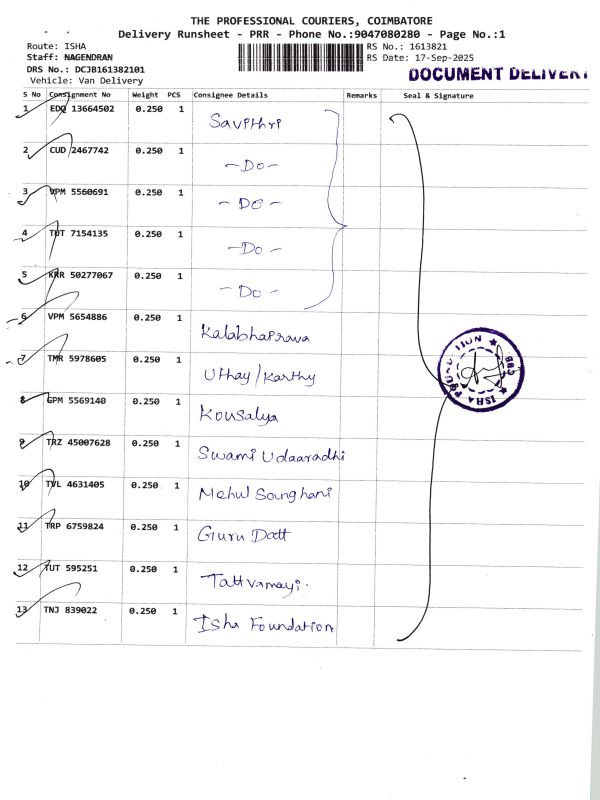 THE PROFESSIONAL COURIERS, COIMBATORE
Delivery Runsheet - PRR - Phone No.:9047080280 - Page No.:1
Route: ISHA
RS No.: 1613821
Staff: NAGENDRAN
RS Date: 17-Sep-2025
DRS No.: DCJB161382101
Vehicle: Van Delivery
DOCUMENT DELIVERY
S No Consignment No Weight PCS Consignee Details Remarks Seal & Signature
1 EDQ 13664502 0.250 1 Savithri
2 CUD 2467742 0.250 1 -Do-
3 VPM 5560691 0.250 1 -Do-
4 TUT 7154135 0.250 1 -Do-
5 KRR 50277067 0.250 1 -Do-
6 VPM 5654886 0.250 1 Kalabhaprava
7 TMR 5978605 0.250 1 Uthay/Karthy
8 GPM 5569140 0.250 1 Kousalya
9 TRZ 45007628 0.250 1 Swami Udaaradhi
10 TVL 4631405 0.250 1 Mehul Sanghani
11 TRP 6759824 0.250 1 Guru Datt
12 TUT 595251 0.250 1 Tattvamayi.
13 TNJ 839022 0.250 1 Isha Foundation
ISHA FOUNDATION
CBE